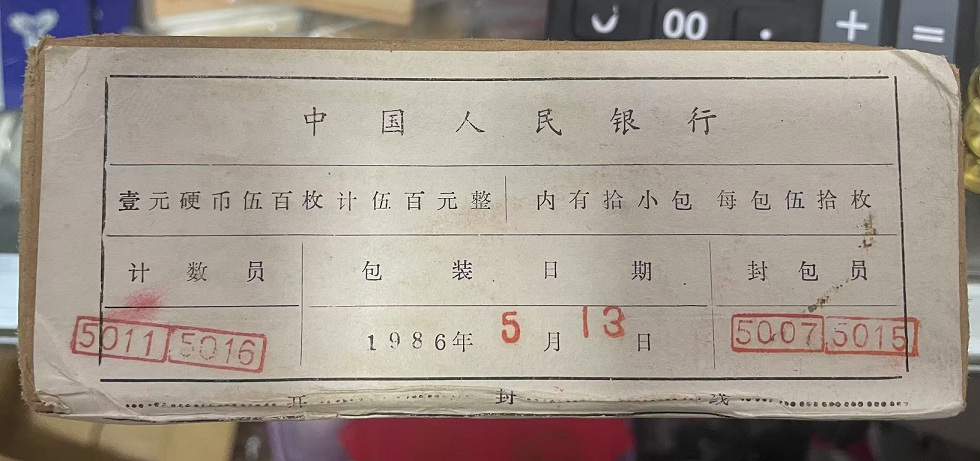 00 . +
=
中国人民银行
壹元硬币伍百枚计伍百元整 内有拾小包 每包伍拾枚
计数员 包装日期 封包员
5011 5016 1986年 5月 13日 5007 5015
开封线